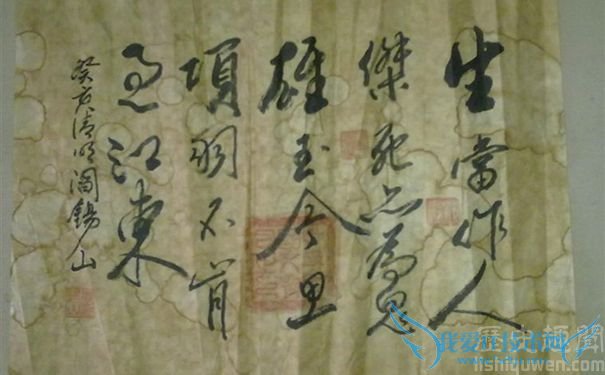 生當作人
傑死亦為鬼
雄至今思
項羽不肯
過江東
癸亥清明閻錫山
歷史趣聞
lishiquwen.com